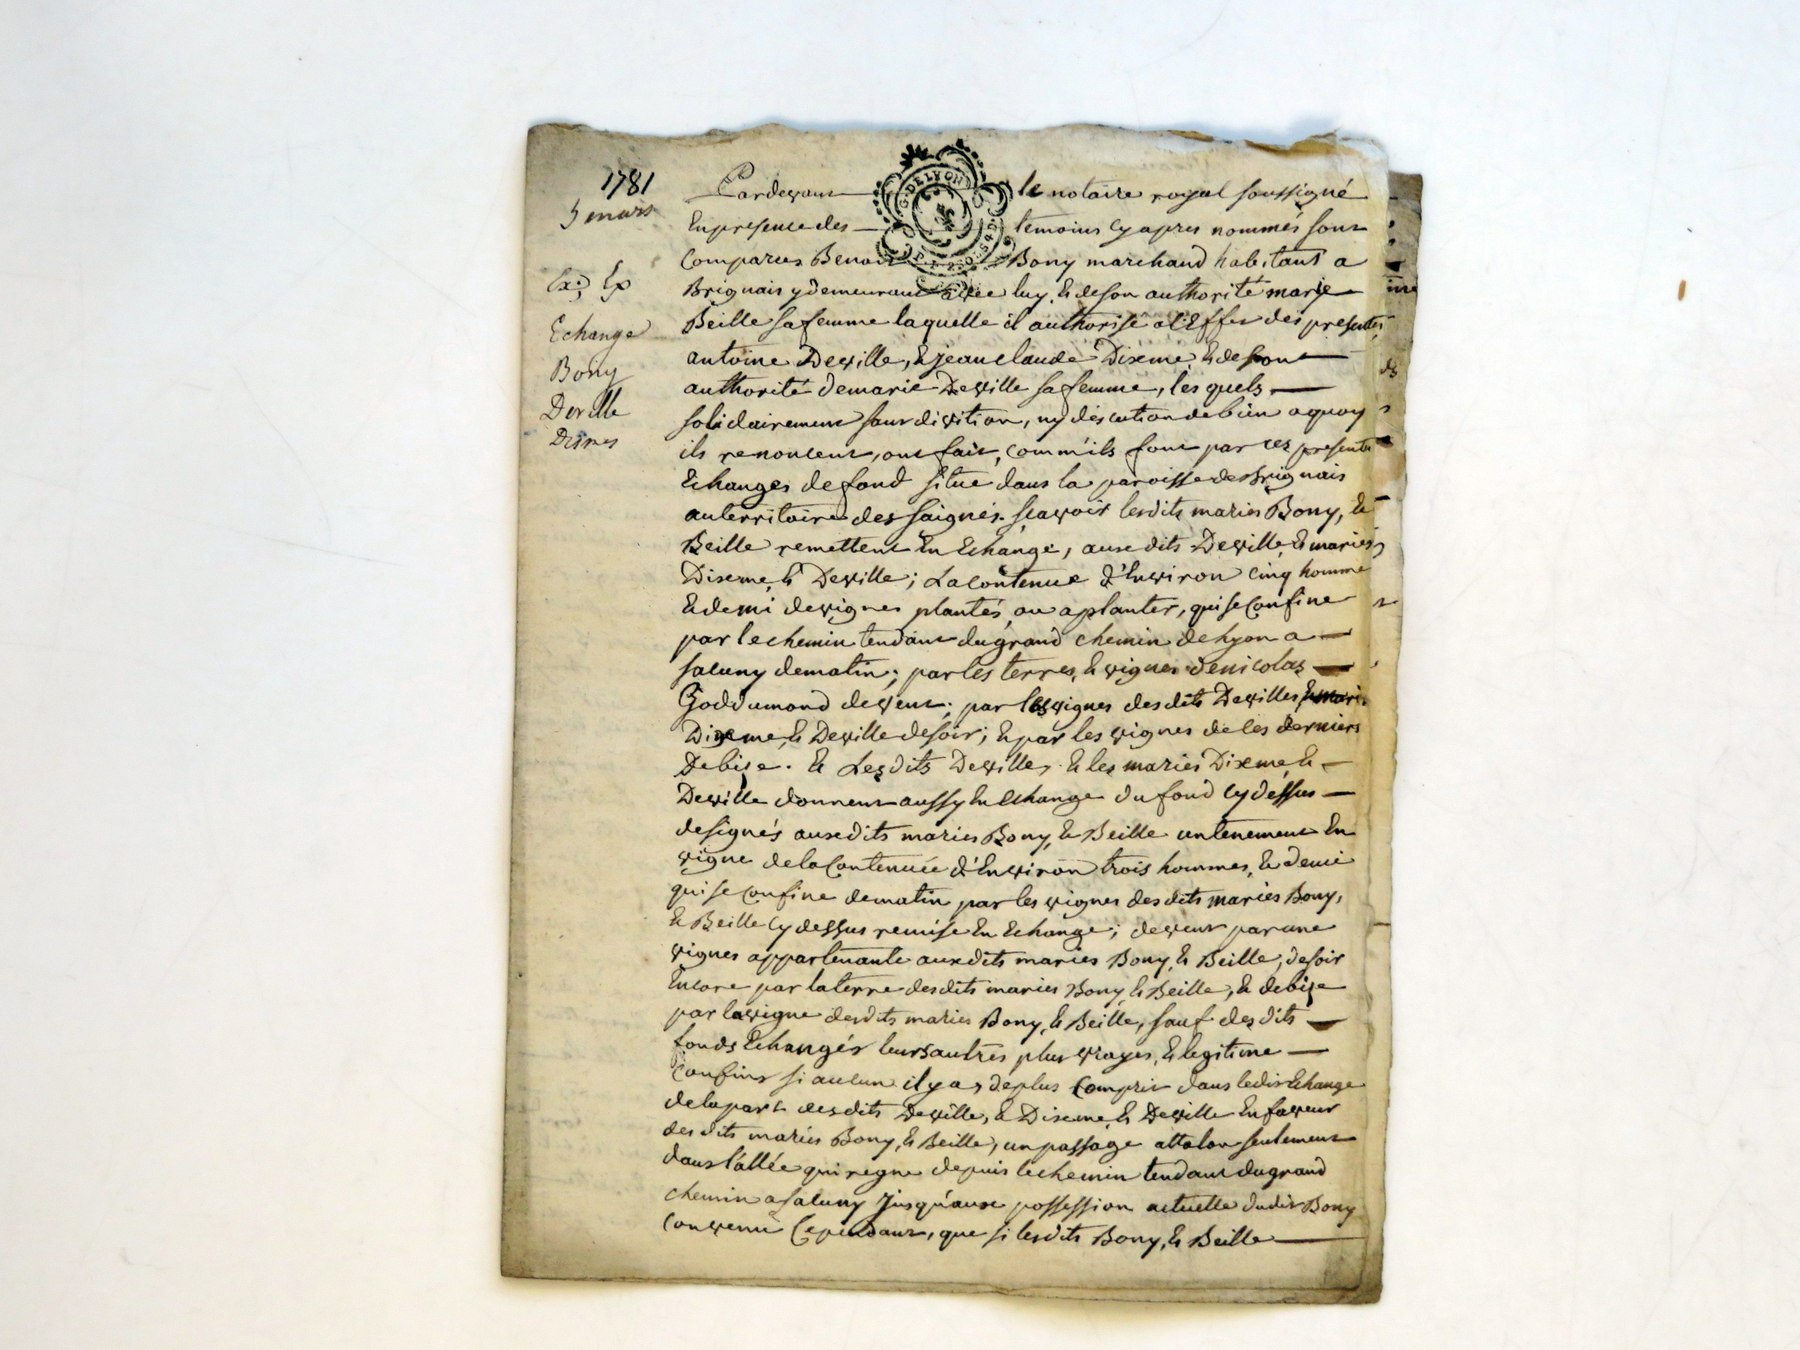 1781
5 mars
Ex.on Ex
Echange
Bony
Deville
Dismes
G. DE LYON
Pardevant le notaire royal soussigné
En presence des temoins cy apres nommés sont
Comparus Benoit Bony marchand habitant a
Brignais y demeurant avec luy, & de son authorité marie
Beille sa femme laquelle il authorise a l'Effet des presentes,
antoine Deville, & jean claude Dixme, & de son
authorité demarie Deville sa femme, les quels
solidairement sans division, ny discution de bien a quoy
ils renoncent, ont fait, comm'ils font par ces presentes
Echanges de fond situé dans la paroisse des Brignais
au territoire des saignes. sçavoir lesdits mariés Bony, &
Beille remettent En Echange, aux dits Deville & mariés
Dixme, & Deville; La contenue d'Environ cinq homme
& demi de vignes plantés ou a planter, qui se Confine
par le chemin tendant du grand chemin de Lyon a
sacuny de matin; par les terres, & vignes de nicolas
Goddumond de vent; par les vignes des dits Devilles, & mari
Dixme, & Deville de soir; & par les vignes de ces derniers
De bize. & Lesdits Deville, & les mariés Dixme, &
Deville donnent aussy En Echange du fond cy dessus
designés aux dits mariés Bony, & Beille un tenement En
vigne de la Contenuée d'Environ trois hommes, & demi
qui se Confine de matin par les vignes des dits mariés Bony,
& Beille cy dessus remise En Echange; de vent par une
vignes appartenante aux dits mariés Bony, & Beille, de soir
Encore par la terre des dits mariés Bony & Beille, & de bize
par la vigne des dits mariés Bony, & Beille, sauf des dits
fonds Echangés leurs autres plus vrayes, & legitime
Confins si aucun il y a, de plus Compris dans ledit Echange
de la part des dits Deville, & Dixme, & Deville En faveur
des dits mariés Bony, & Beille, un passage attalon seulement
dans l'allée qui regne depuis le chemin tendant du grand
chemin a sacuny jusqu'aux possession actuelle dudit Bony
Convenu Cependant, que si lesdits Bony, & Beille